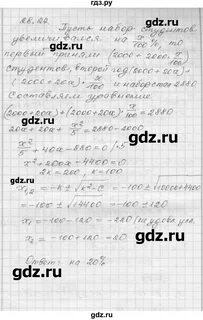 гдз.ру
28.22
Пусть набор студентов
увеличивался на x/100 %, то
первый приняли (2000 + 2000 · x/100)
студентов, второй год (2000+20x) +
(2000+20x) · x/100 и набором 2880
Составляем уравнение
(2000+20x)+(2000+20x) · x/100 = 2880
20x + 20x + x²/5 = 2880 - 2000
x²/5 + 40x - 880 = 0 | · 5
x² + 200x - 4400 = 0
2k = 200, k = 100
x₁,₂ = -k ± √k² - c = -100 ± √10000+4400
= -100 ± √14400 = -100 ± 120
x₁ = -100 - 120 = -220
x₂ = -100 + 120 = 20
Ответ: на 20%
gdz.ru